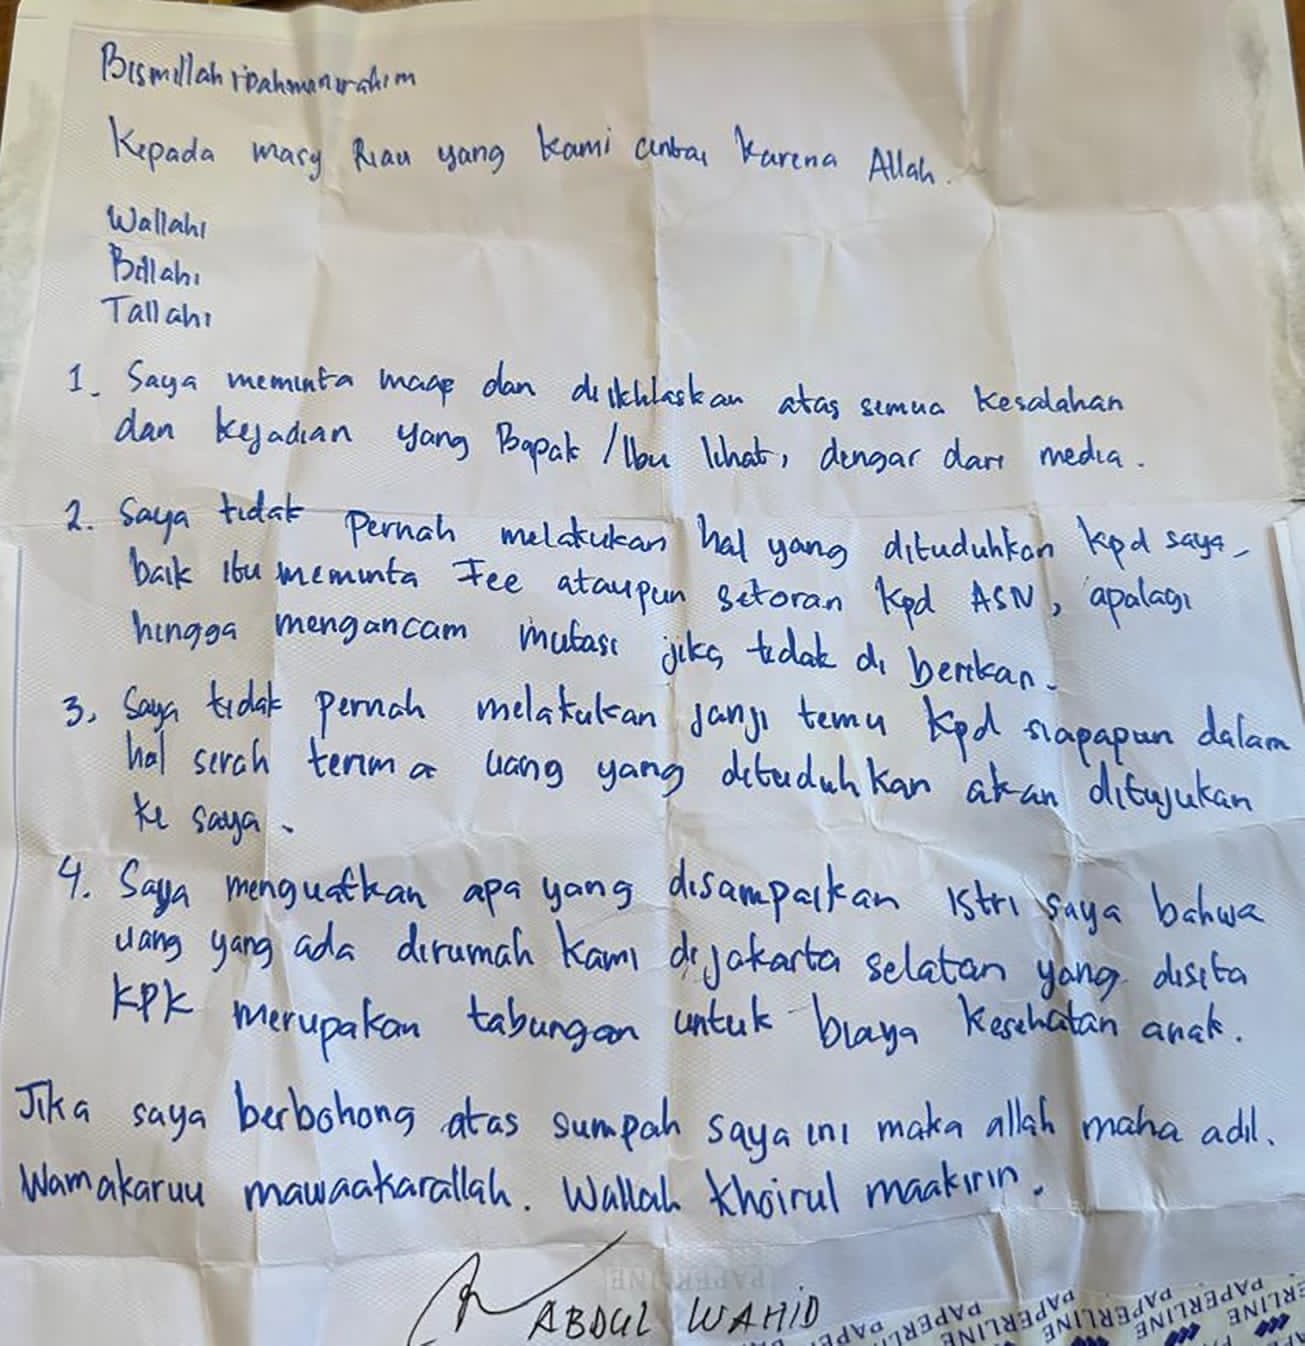 Bismillahirrahmanirrahim
Kepada masy Riau yang kami cintai karena Allah.
Wallahi
Billahi
Tallahi
1. Saya meminta maaf dan diikhlaskan atas semua kesalahan
dan kejadian yang Bapak/Ibu lihat, dengar dari media.
2. Saya tidak pernah melakukan hal yang dituduhkan kpd saya
baik itu meminta Fee ataupun setoran kpd ASN, apalagi
hingga mengancam mutasi jika tidak di berikan.
3. Saya tidak pernah melakukan janji temu kpd siapapun dalam
hal serah terima uang yang dituduhkan akan ditujukan
ke saya.
4. Saya menguatkan apa yang disampaikan istri saya bahwa
uang yang ada dirumah kami dijakarta selatan yang disita
KPK merupakan tabungan untuk biaya kesehatan anak.
Jika saya berbohong atas sumpah saya ini maka allah maha adil.
Wamakaruu mawaakarallah. Wallah khoirul maakirin.
ABDUL WAHID
PAPERLINE
PAPERLINE PAPERLINE PAPERLINE PAPERLINE